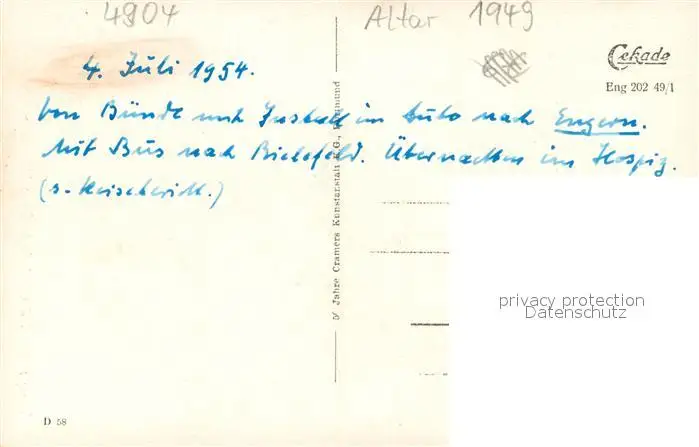 4904
Altar 1949
Cekade
Eng 202 49/1
4. Juli 1954.
Von Bünde mit im Auto nach Engern.
Mit Bus nach Bielefeld. Übernachten im Hospiz.
(s. Reisebericht.)
Jahre Cramers Kunstanstalt KG., Dortmund
privacy protection
Datenschutz
D 58